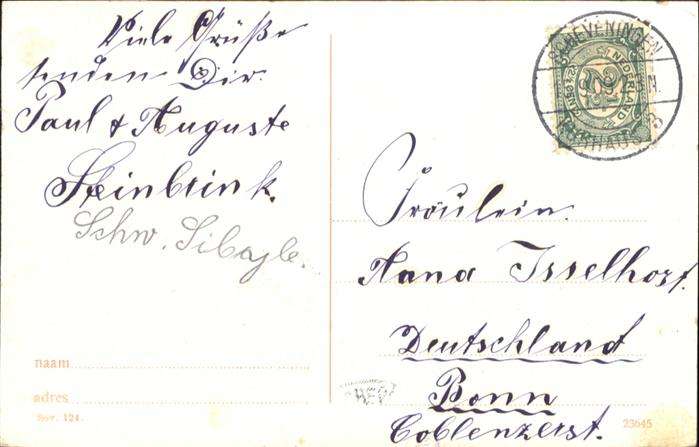 Viele Grüße
senden Dir
Paul & Auguste
Steinbrink.
Schw.
naam
adres
Sev. 124.
SCHEVENINGEN
NEDERLAND
2½
Fräulein
Nana Isselhorst.
Deutschland
Bonn
Coblenzerst.
23645